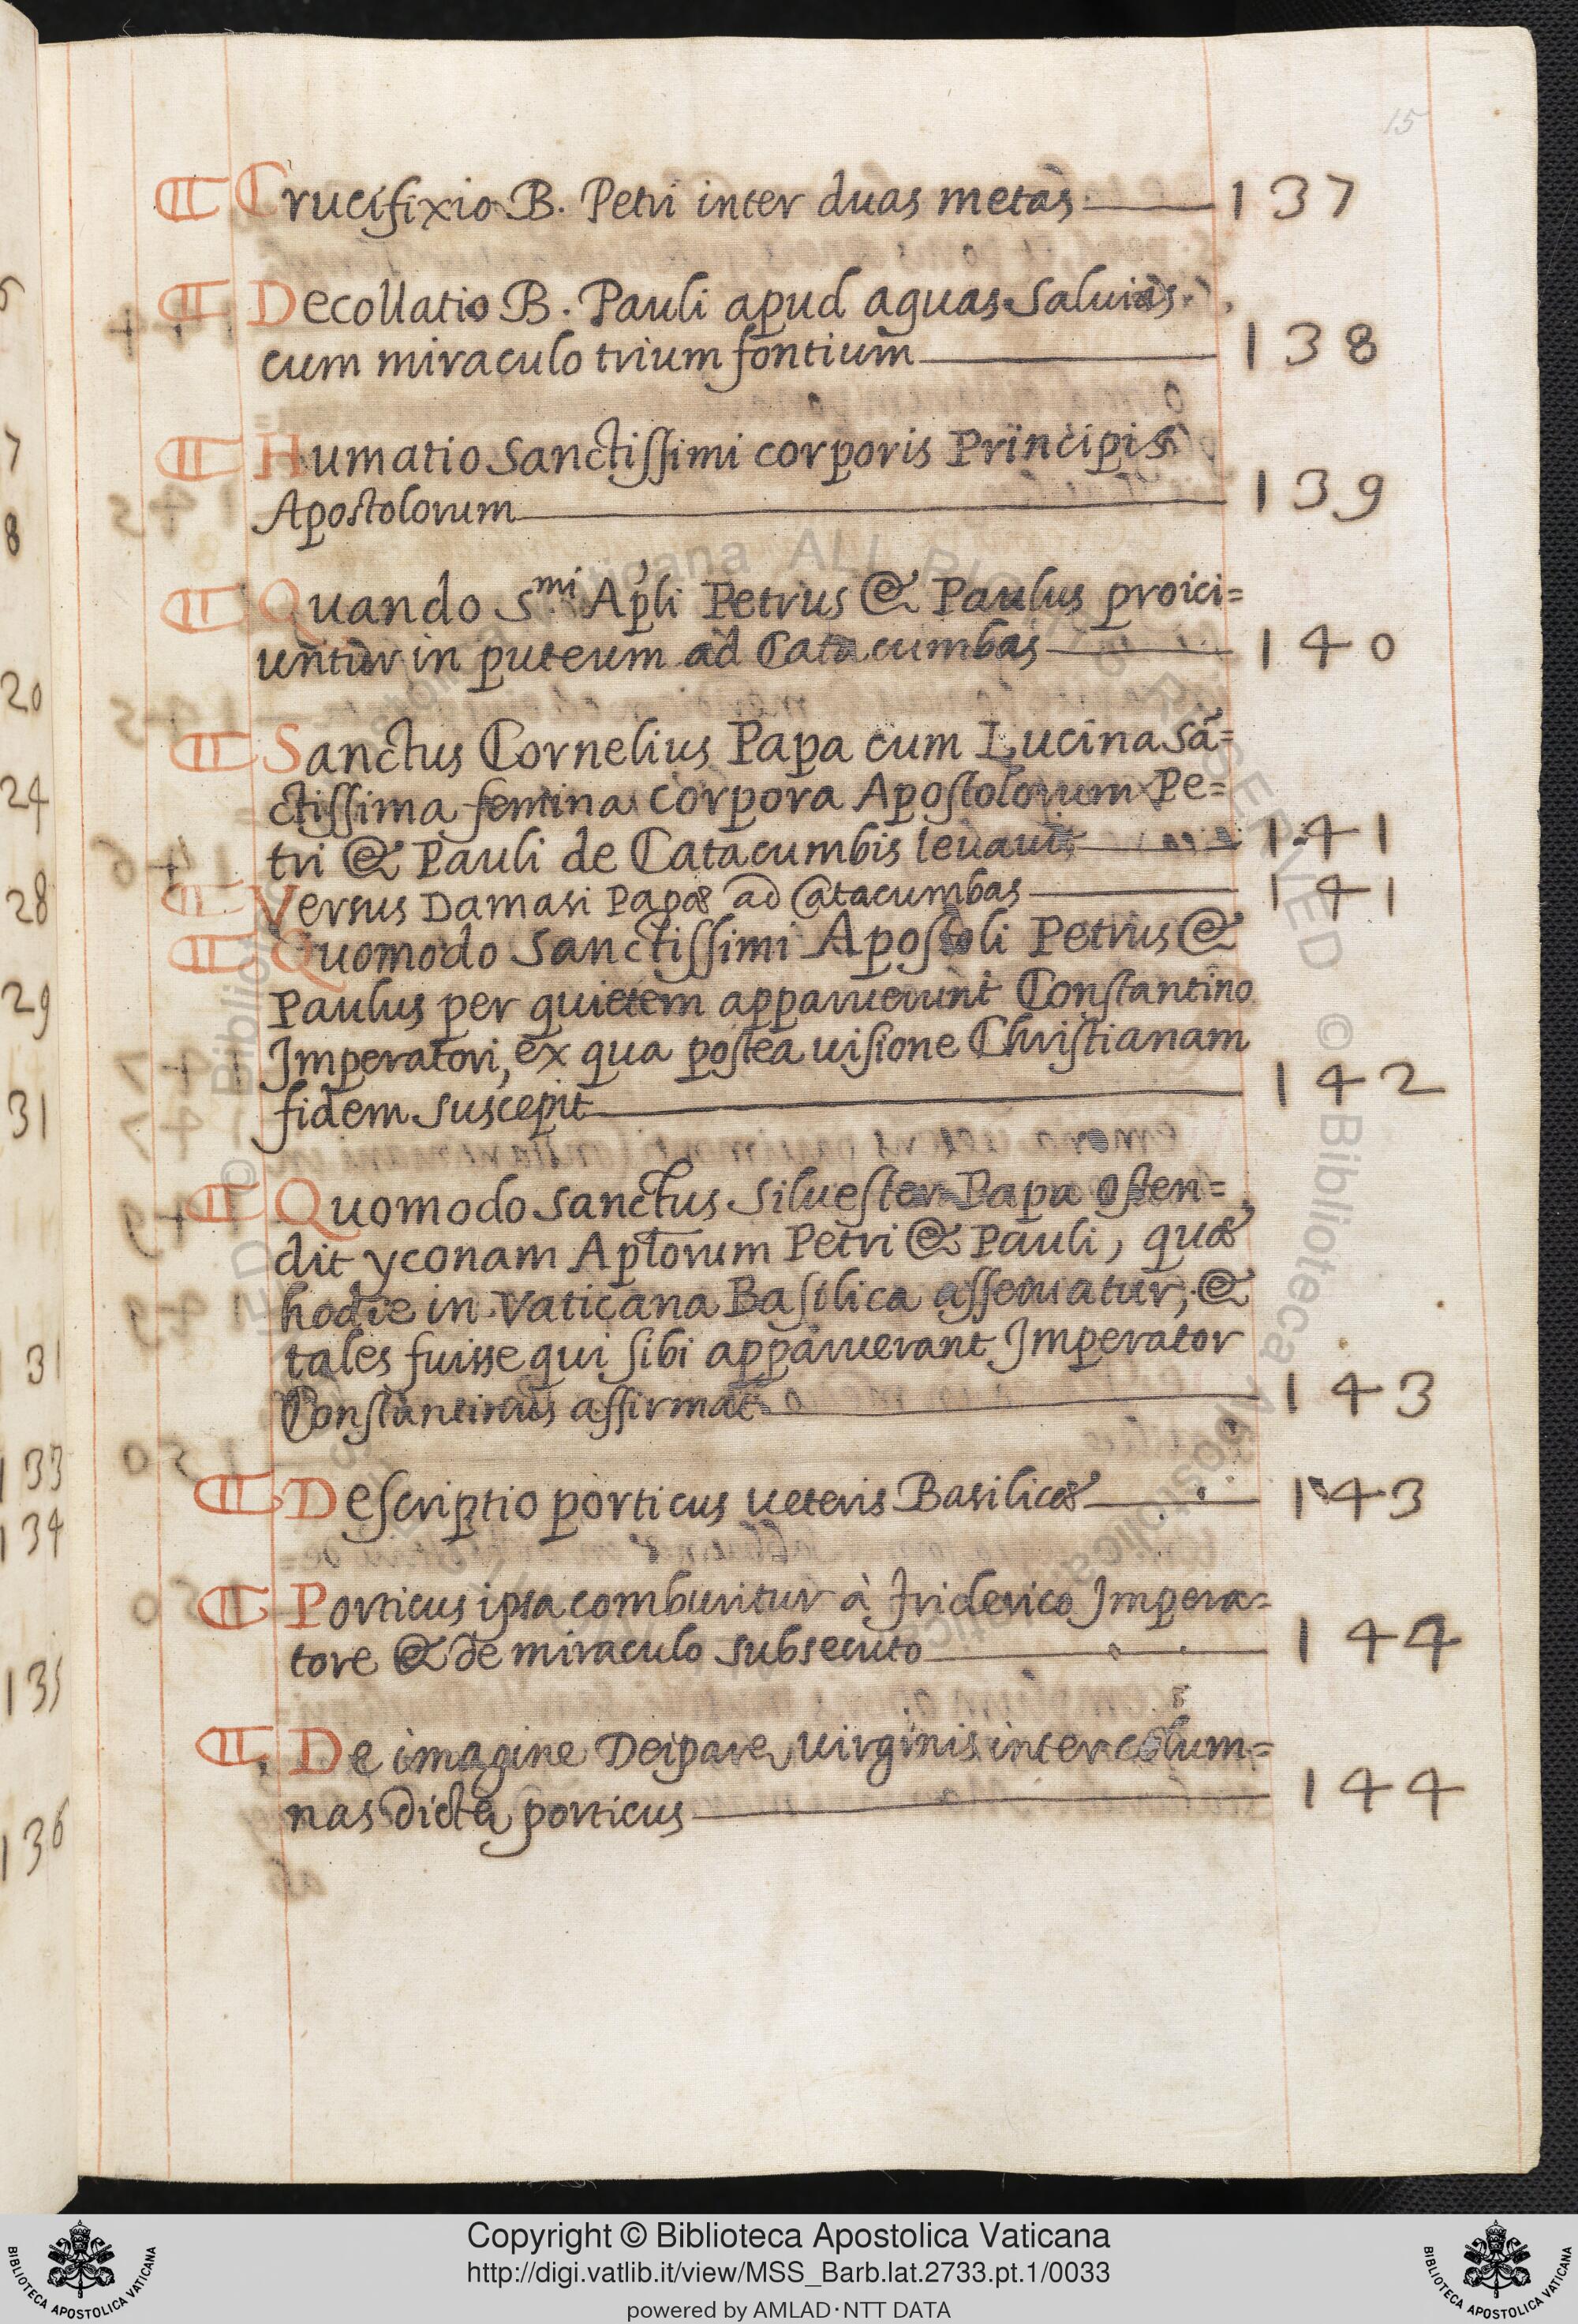 15
¶ Crucifixio B. Petri inter duas metas 137
¶ Decollatio B. Pauli apud aquas Saluias
cum miraculo trium fontium 138
¶ Humatio sanctissimi corporis Principis
Apostolorum 139
¶ Quando S.mi Ap'li Petrus & Paulus proici=
untur in puteum ad Catacumbas 140
¶ Sanctus Cornelius Papa cum Lucina sã=
ctissima femina corpora Apostolorum Pe=
tri & Pauli de Catacumbis leuauit 141
¶ Versus Damasi Papæ ad Catacumbas 141
¶ Quomodo sanctissimi Apostoli Petrus &
Paulus per quietem apparuerunt Constantino
Imperatori, ex qua postea uisione Christianam
fidem suscepit 142
¶ Quomodo sanctus Siluester Papa osten=
dit yconam Aptorum Petri & Pauli, quæ
hodie in Vaticana Basilica asseruatur, &
tales fuisse qui sibi apparuerant Imperator
Constantinus affirmat 143
¶ Descriptio porticus ueteris Basilicæ 143
¶ Porticus ipsa comburitur à Friderico Impera=
tore & de miraculo subsecuto 144
¶ De imagine Deiparę uirginis inter colum=
nas dictę porticus 144
7
8
20
24
28
29
31
31
133
134
135
136
Copyright © Biblioteca Apostolica Vaticana
http://digi.vatlib.it/view/MSS_Barb.lat.2733.pt.1/0033
powered by AMLAD·NTT DATA
BIBLIOTECA APOSTOLICA VATICANA
BIBLIOTECA APOSTOLICA VATICANA